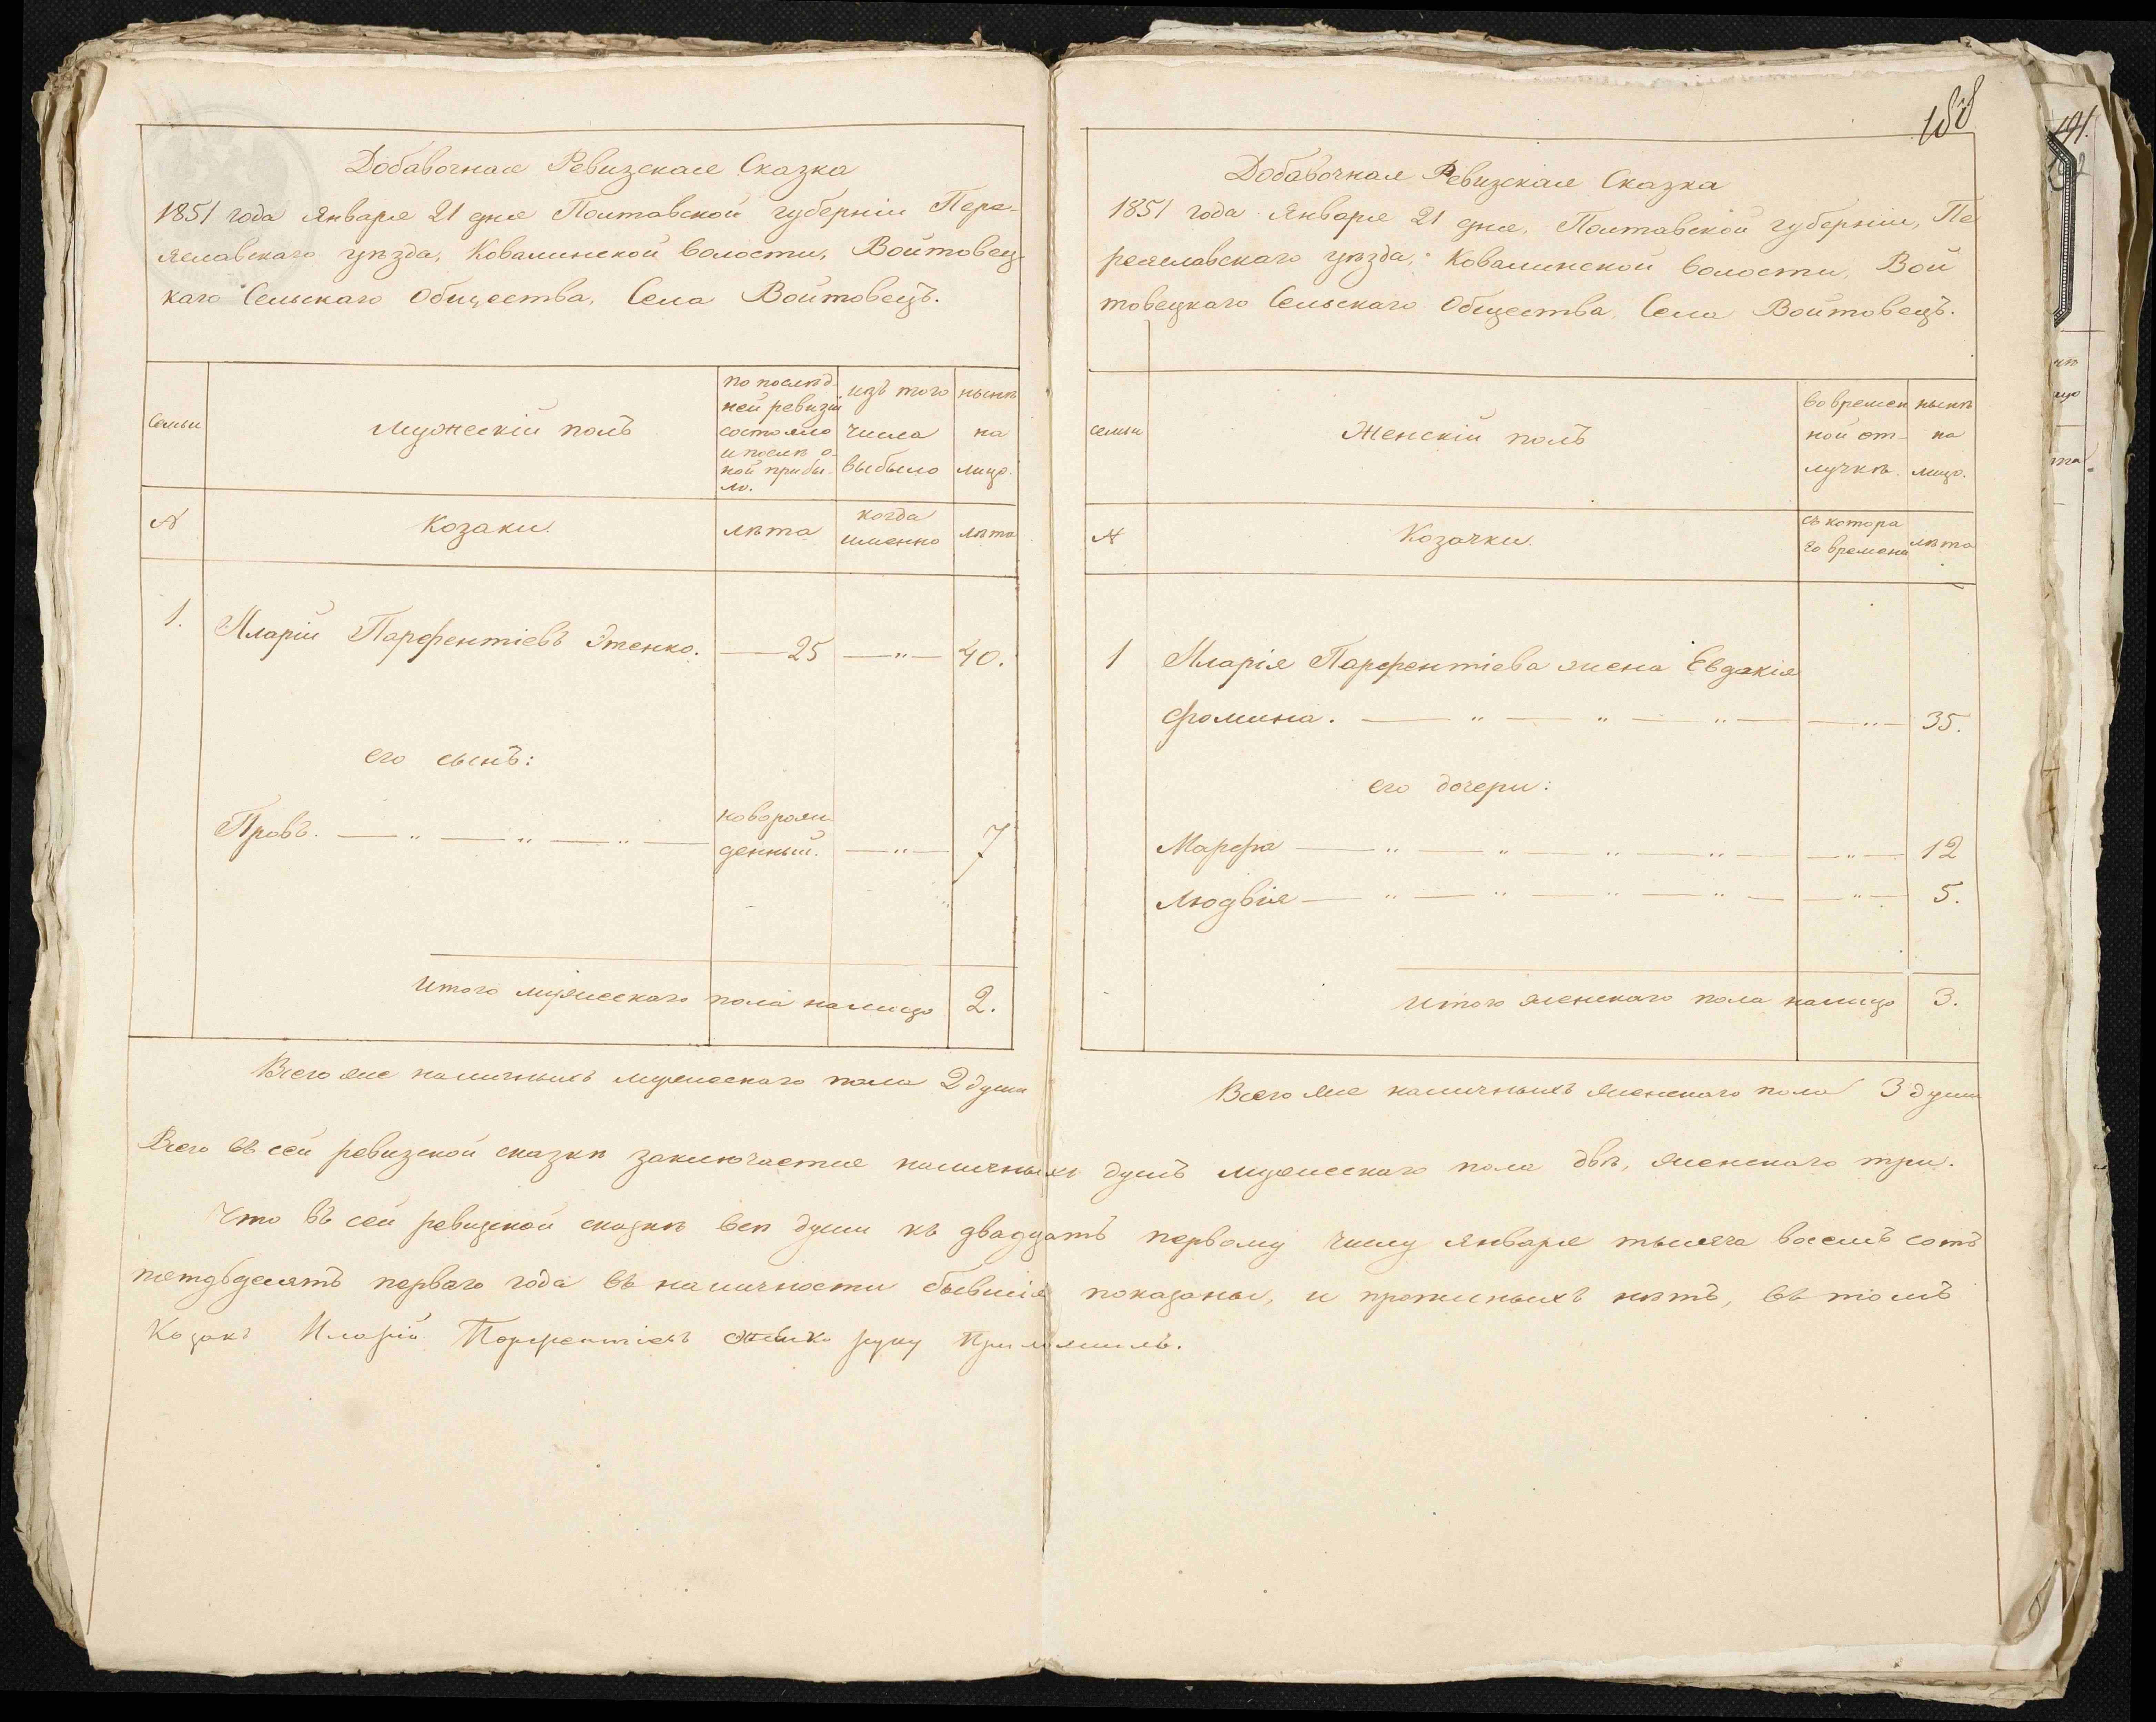 Добавочная Ревизская Сказка
1851 года Января 21 дня Полтавской губерніи Пере-
яславскаго уѣзда, Ковалинской волости, Войтовец-
каго Сельскаго Общества, Села Войтовецъ.
Семьи
Мужескій полъ
по послѣд-
ней ревизіи
состояло
и послѣ о-
ной прибы-
ло.
изъ того
числа
выбыло
нынѣ
на
лицо.
№
Козаки.
лѣта
когда
именно
лѣта
1. Иларій Парфентіевъ Ященко. — 25 — „ — 40.
его сынъ:
Провъ. — „ — „ — „ —
новорож-
денный. — „ — 7
Итого мужескаго пола налицо 2.
Всего же наличныхъ мужескаго пола 2 души
188
Добавочная Ревизская Сказка
1851 года Января 21 дня, Полтавской губерніи, Пе
реяславскаго уѣзда, Ковалинской волости, Вой
товецкаго Сельскаго Общества, Села Войтовецъ.
семьи
Женскій полъ
во времен
ной от-
лучкѣ.
нынѣ
на
лицо.
№
Козачки.
съ котора
го времени
лѣта
1 Иларія Парфентіева жена Евдокія
Фомина. — „ — „ — „ — — „ — 35.
его дочери:
Марфа — „ — „ — „ — „ — — „ — 12
Людвія — „ — „ — „ — „ — — „ — 5.
Итого женскаго пола налицо 3.
Всего же наличныхъ женскаго пола 3 души
Всего въ сей ревизской сказкѣ заключается наличныхъ душъ мужескаго пола двѣ, женскаго три.
Что въ сей ревизской сказкѣ всѣ души къ двадцать первому числу января тысяча восемь сотъ
пятдѣдесятъ перваго года въ наличности бывшія показаны, и прописныхъ нѣтъ, въ томъ
Козакъ Иларій Парфентіевъ руку Приложилъ.
191.